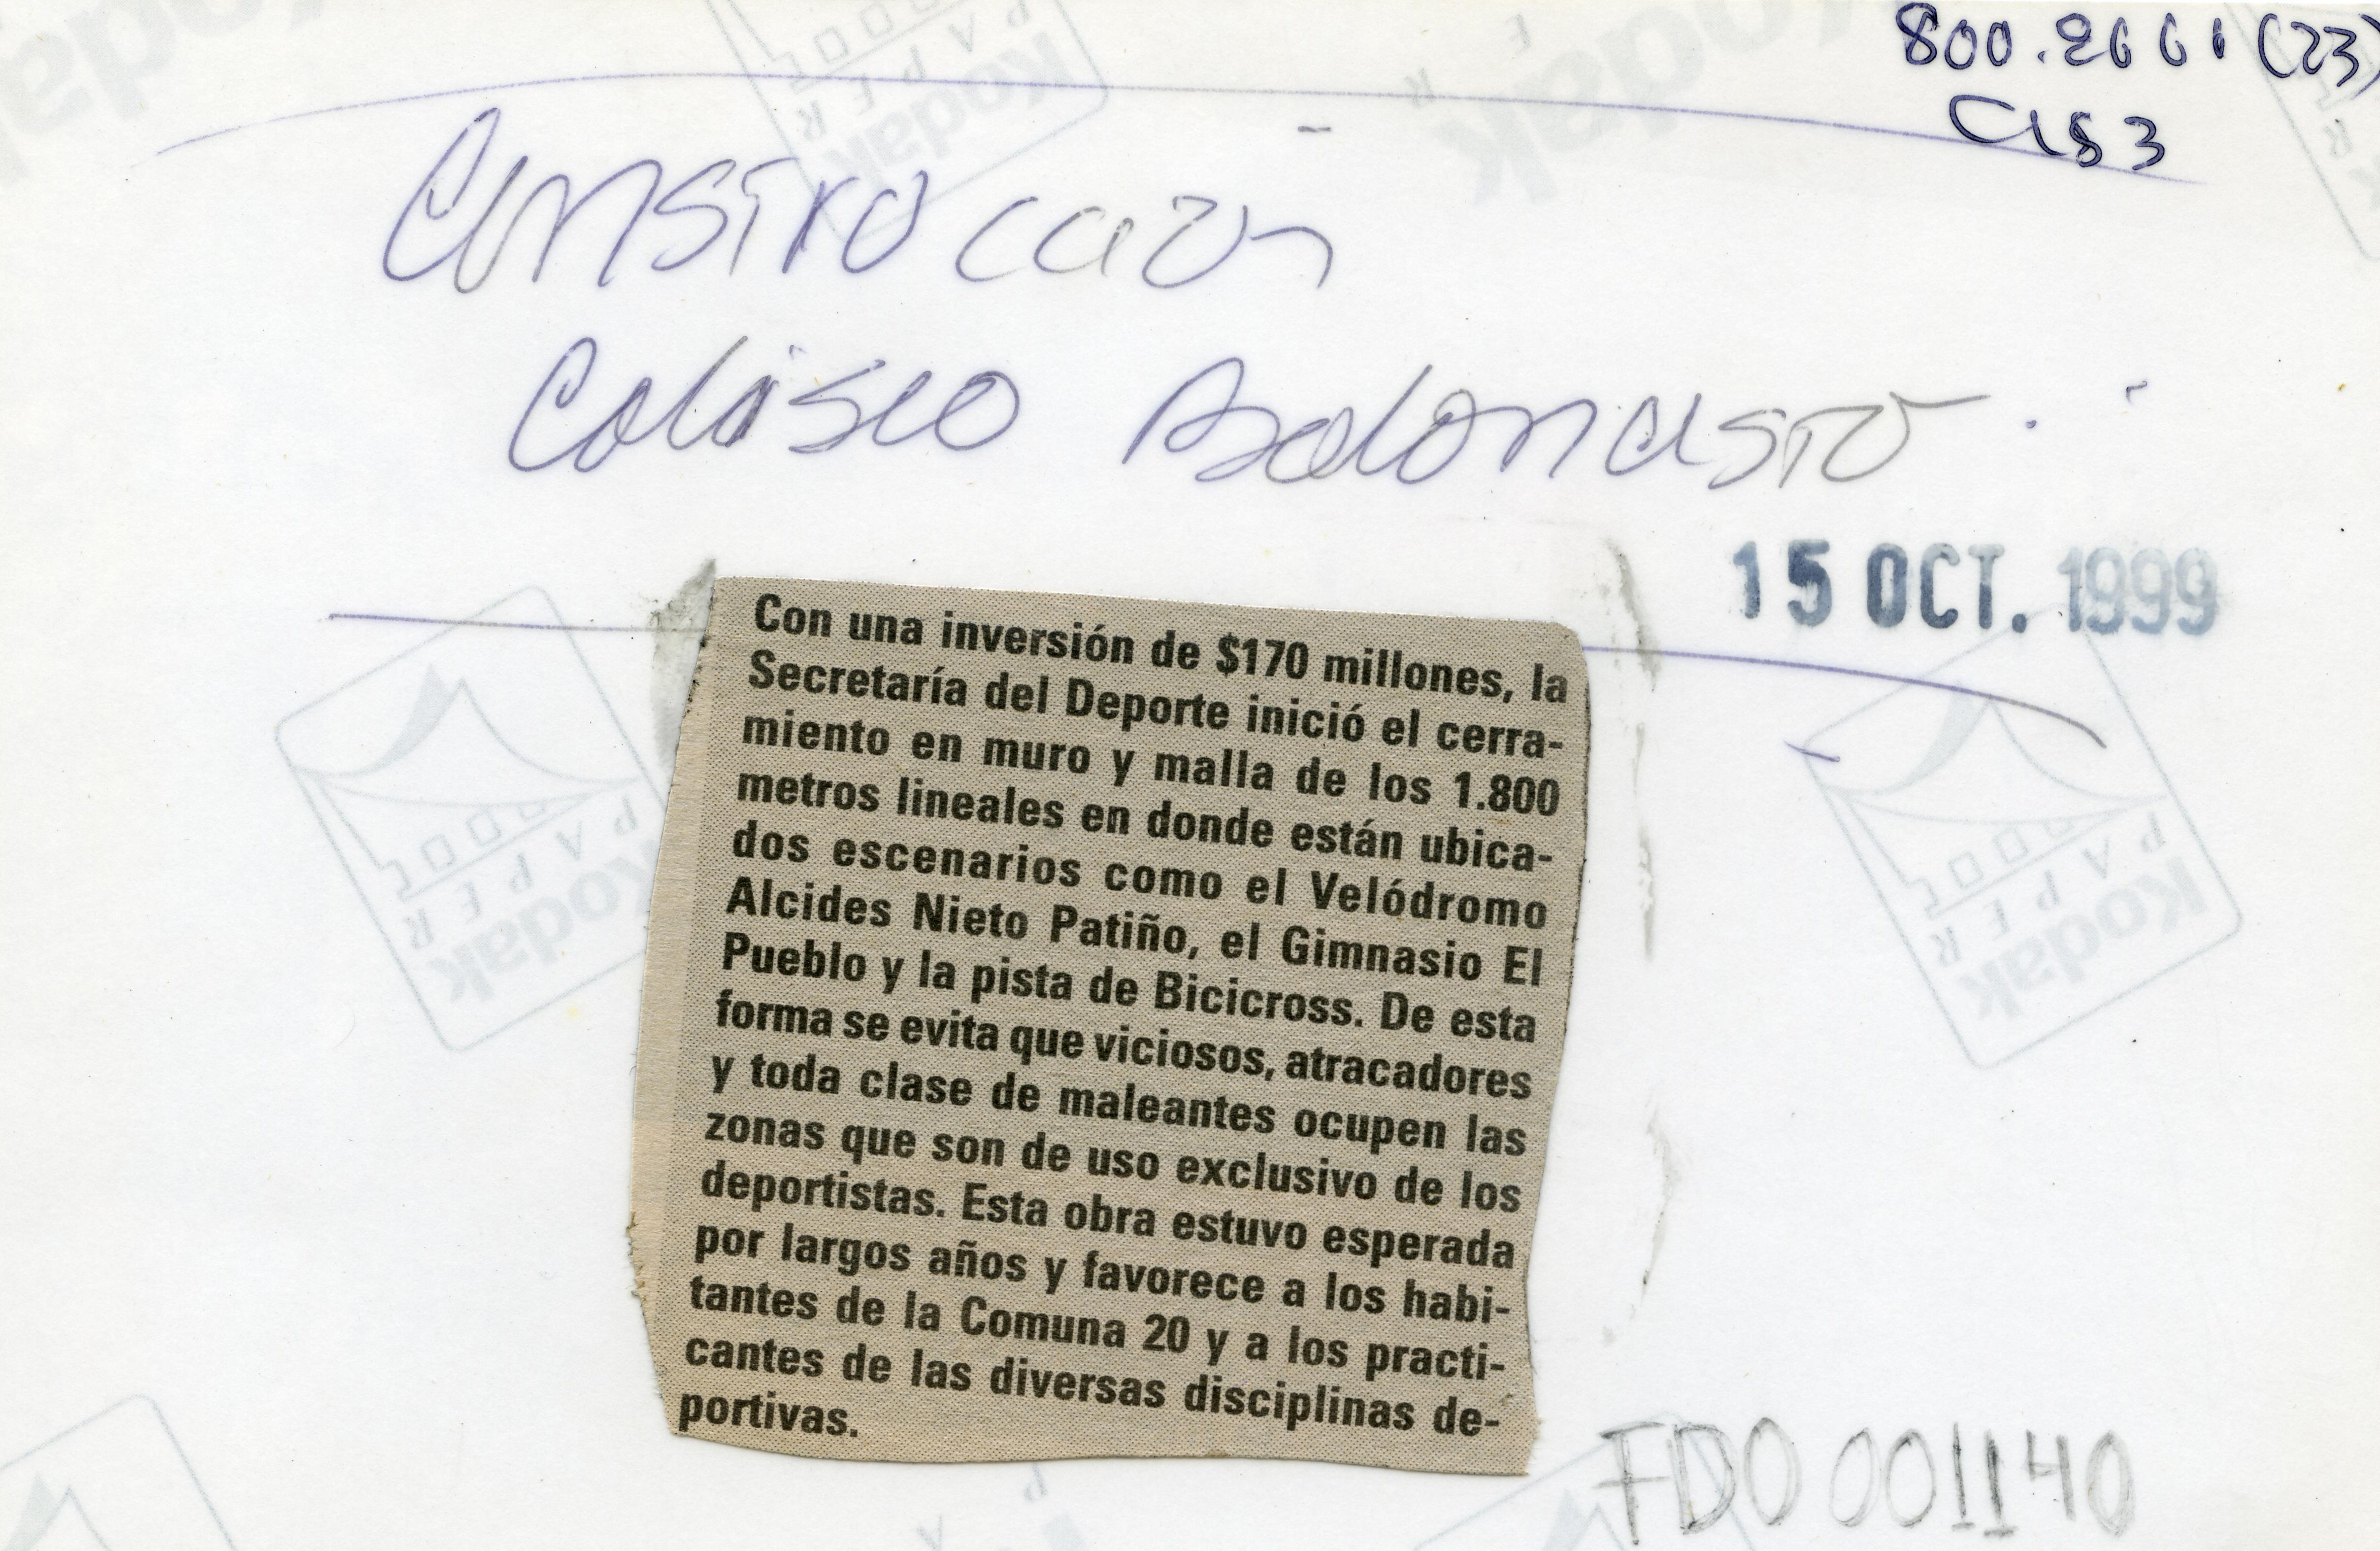 800.2661 (23)
C153
Construcción
Coliseo Baloncesto.
15 OCT. 1999
Con una inversión de $170 millones, la
Secretaría del Deporte inició el cerra-
miento en muro y malla de los 1.800
metros lineales en donde están ubica-
dos escenarios como el Velódromo
Alcides Nieto Patiño, el Gimnasio El
Pueblo y la pista de Bicicross. De esta
forma se evita que viciosos, atracadores
y toda clase de maleantes ocupen las
zonas que son de uso exclusivo de los
deportistas. Esta obra estuvo esperada
por largos años y favorece a los habi-
tantes de la Comuna 20 y a los practi-
cantes de las diversas disciplinas de-
portivas.
FDO 001140
Kodak
PAPER
Kodak
PAPER
Kodak
PAPER
Kodak